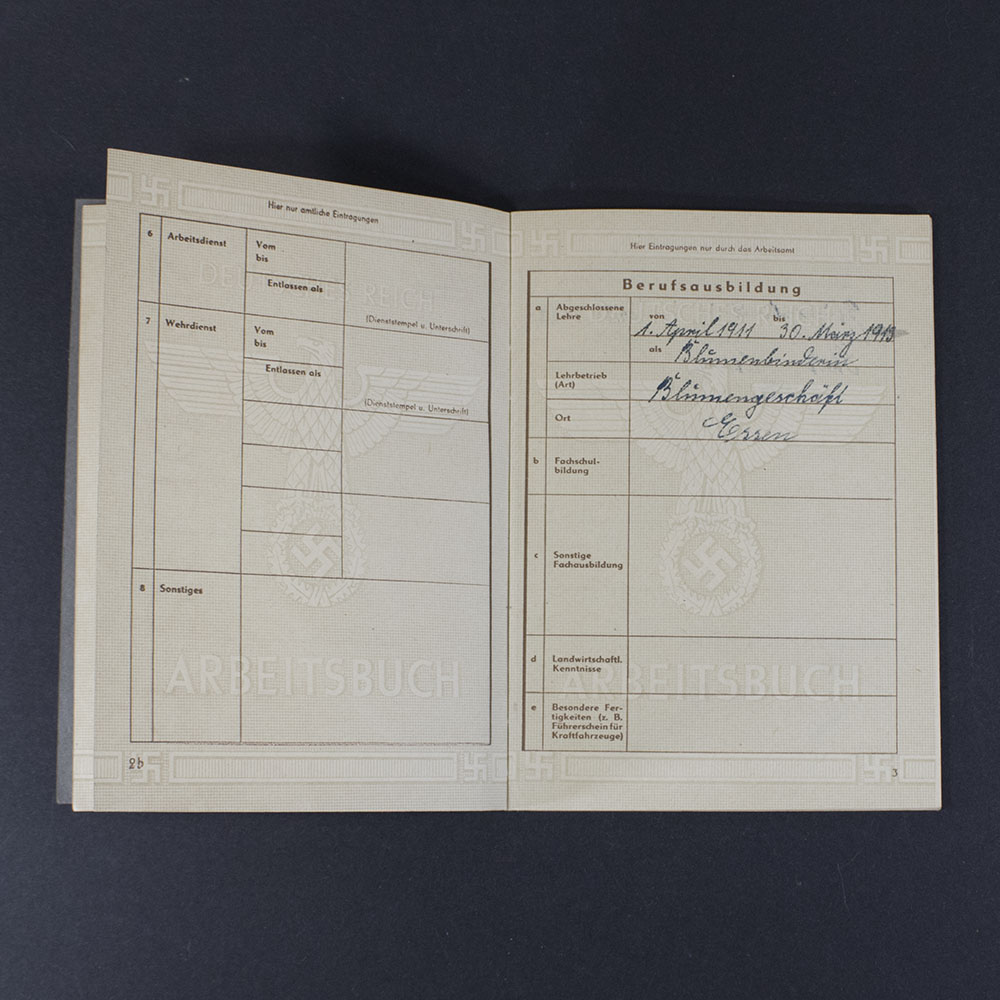 Hier nur amtliche Eintragungen
6 Arbeitsdienst
Vom
bis
Entlassen als
(Dienststempel u. Unterschrift)
7 Wehrdienst
Vom
bis
Entlassen als
(Dienststempel u. Unterschrift)
8 Sonstiges
DEUTSCHES REICH
ARBEITSBUCH
2b
Hier Eintragungen nur durch das Arbeitsamt
Berufsausbildung
a Abgeschlossene
Lehre
von bis
1. April 1911 30. März 1913
als Blumenbinderin
Lehrbetrieb
(Art)
Blumengeschäft
Ort
Essen
b Fachschul-
bildung
c Sonstige
Fachausbildung
d Landwirtschaftl.
Kenntnisse
e Besondere Fer-
tigkeiten (z. B.
Führerschein für
Kraftfahrzeuge)
DEUTSCHES REICH
ARBEITSBUCH
3